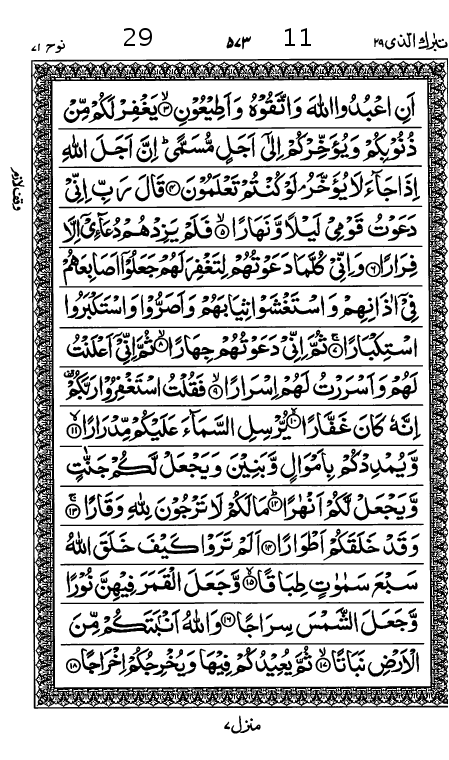 تبٰرك الذى ٢٩ 11 ٥٧٣ 29 نوح ٧١
اَنِ اعْبُدُوا اللّٰهَ وَاتَّقُوْهُ وَاَطِيْعُوْنِ ۙ‏﴿۳﴾ يَغْفِرْ لَكُمْ مِّنْ
ذُنُوْبِكُمْ وَيُؤَخِّرْكُمْ اِلٰٓى اَجَلٍ مُّسَمًّى ؕ اِنَّ اَجَلَ اللّٰهِ
اِذَا جَآءَ لَا يُؤَخَّرُ ۘ لَوْ كُنْتُمْ تَعْلَمُوْنَ ﴿۴﴾ قَالَ رَبِّ اِنِّىْ
دَعَوْتُ قَوْمِىْ لَيْلًا وَّنَهَارًا ۙ﴿۵﴾ فَلَمْ يَزِدْهُمْ دُعَآءِىْۤ اِلَّا
فِرَارًا ﴿۶﴾ وَاِنِّىْ كُلَّمَا دَعَوْتُهُمْ لِتَغْفِرَ لَهُمْ جَعَلُوْۤا اَصَابِعَهُمْ
فِىْۤ اٰذَانِهِمْ وَاسْتَغْشَوْا ثِيَابَهُمْ وَاَصَرُّوْا وَاسْتَكْبَرُوا
اسْتِكْبَارًا ۚ﴿۷﴾ ثُمَّ اِنِّىْ دَعَوْتُهُمْ جِهَارًا ۙ﴿۸﴾ ثُمَّ اِنِّىْۤ اَعْلَنْتُ
لَهُمْ وَاَسْرَرْتُ لَهُمْ اِسْرَارًا ۙ﴿۹﴾ فَقُلْتُ اسْتَغْفِرُوْا رَبَّكُمْ ؕ
اِنَّهٗ كَانَ غَفَّارًا ۙ﴿۱۰﴾ يُّرْسِلِ السَّمَآءَ عَلَيْكُمْ مِّدْرَارًا ۙ﴿۱۱﴾
وَّيُمْدِدْكُمْ بِاَمْوَالٍ وَّبَنِيْنَ وَيَجْعَلْ لَّكُمْ جَنّٰتٍ
وَّيَجْعَلْ لَّكُمْ اَنْهٰرًا ؕ﴿۱۲﴾ مَا لَكُمْ لَا تَرْجُوْنَ لِلّٰهِ وَقَارًا ۚ﴿۱۳﴾
وَقَدْ خَلَقَكُمْ اَطْوَارًا ﴿۱۴﴾ اَلَمْ تَرَوْا كَيْفَ خَلَقَ اللّٰهُ
سَبْعَ سَمٰوٰتٍ طِبَاقًا ۙ﴿۱۵﴾ وَّجَعَلَ الْقَمَرَ فِيْهِنَّ نُوْرًا
وَّجَعَلَ الشَّمْسَ سِرَاجًا ﴿۱۶﴾ وَاللّٰهُ اَنْۢبَتَكُمْ مِّنَ
الْاَرْضِ نَبَاتًا ۙ﴿۱۷﴾ ثُمَّ يُعِيْدُكُمْ فِيْهَا وَيُخْرِجُكُمْ اِخْرَاجًا ﴿۱۸﴾
وقف لازم
منزل ٧